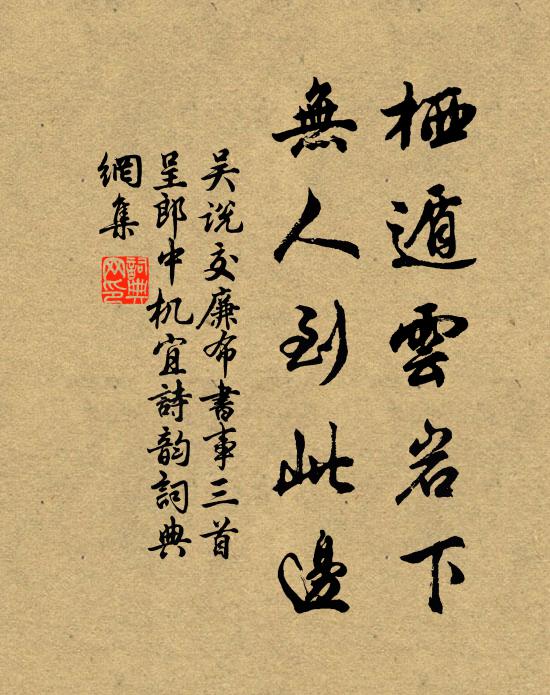 栖遁雲岩下
無人到此邊
吴説交廉布書事三首
呈郎中机宜詩韵詞典
網集
詞典
网印